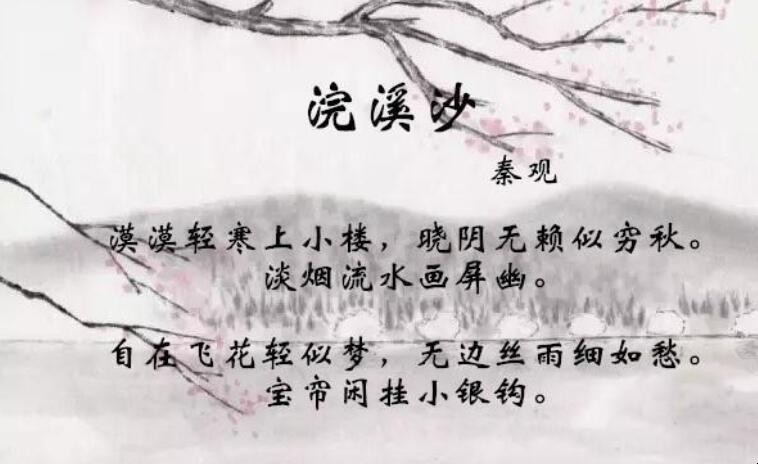 浣溪沙
秦观
漠漠轻寒上小楼，晓阴无赖似穷秋。
淡烟流水画屏幽。
自在飞花轻似梦，无边丝雨细如愁。
宝帘闲挂小银钩。